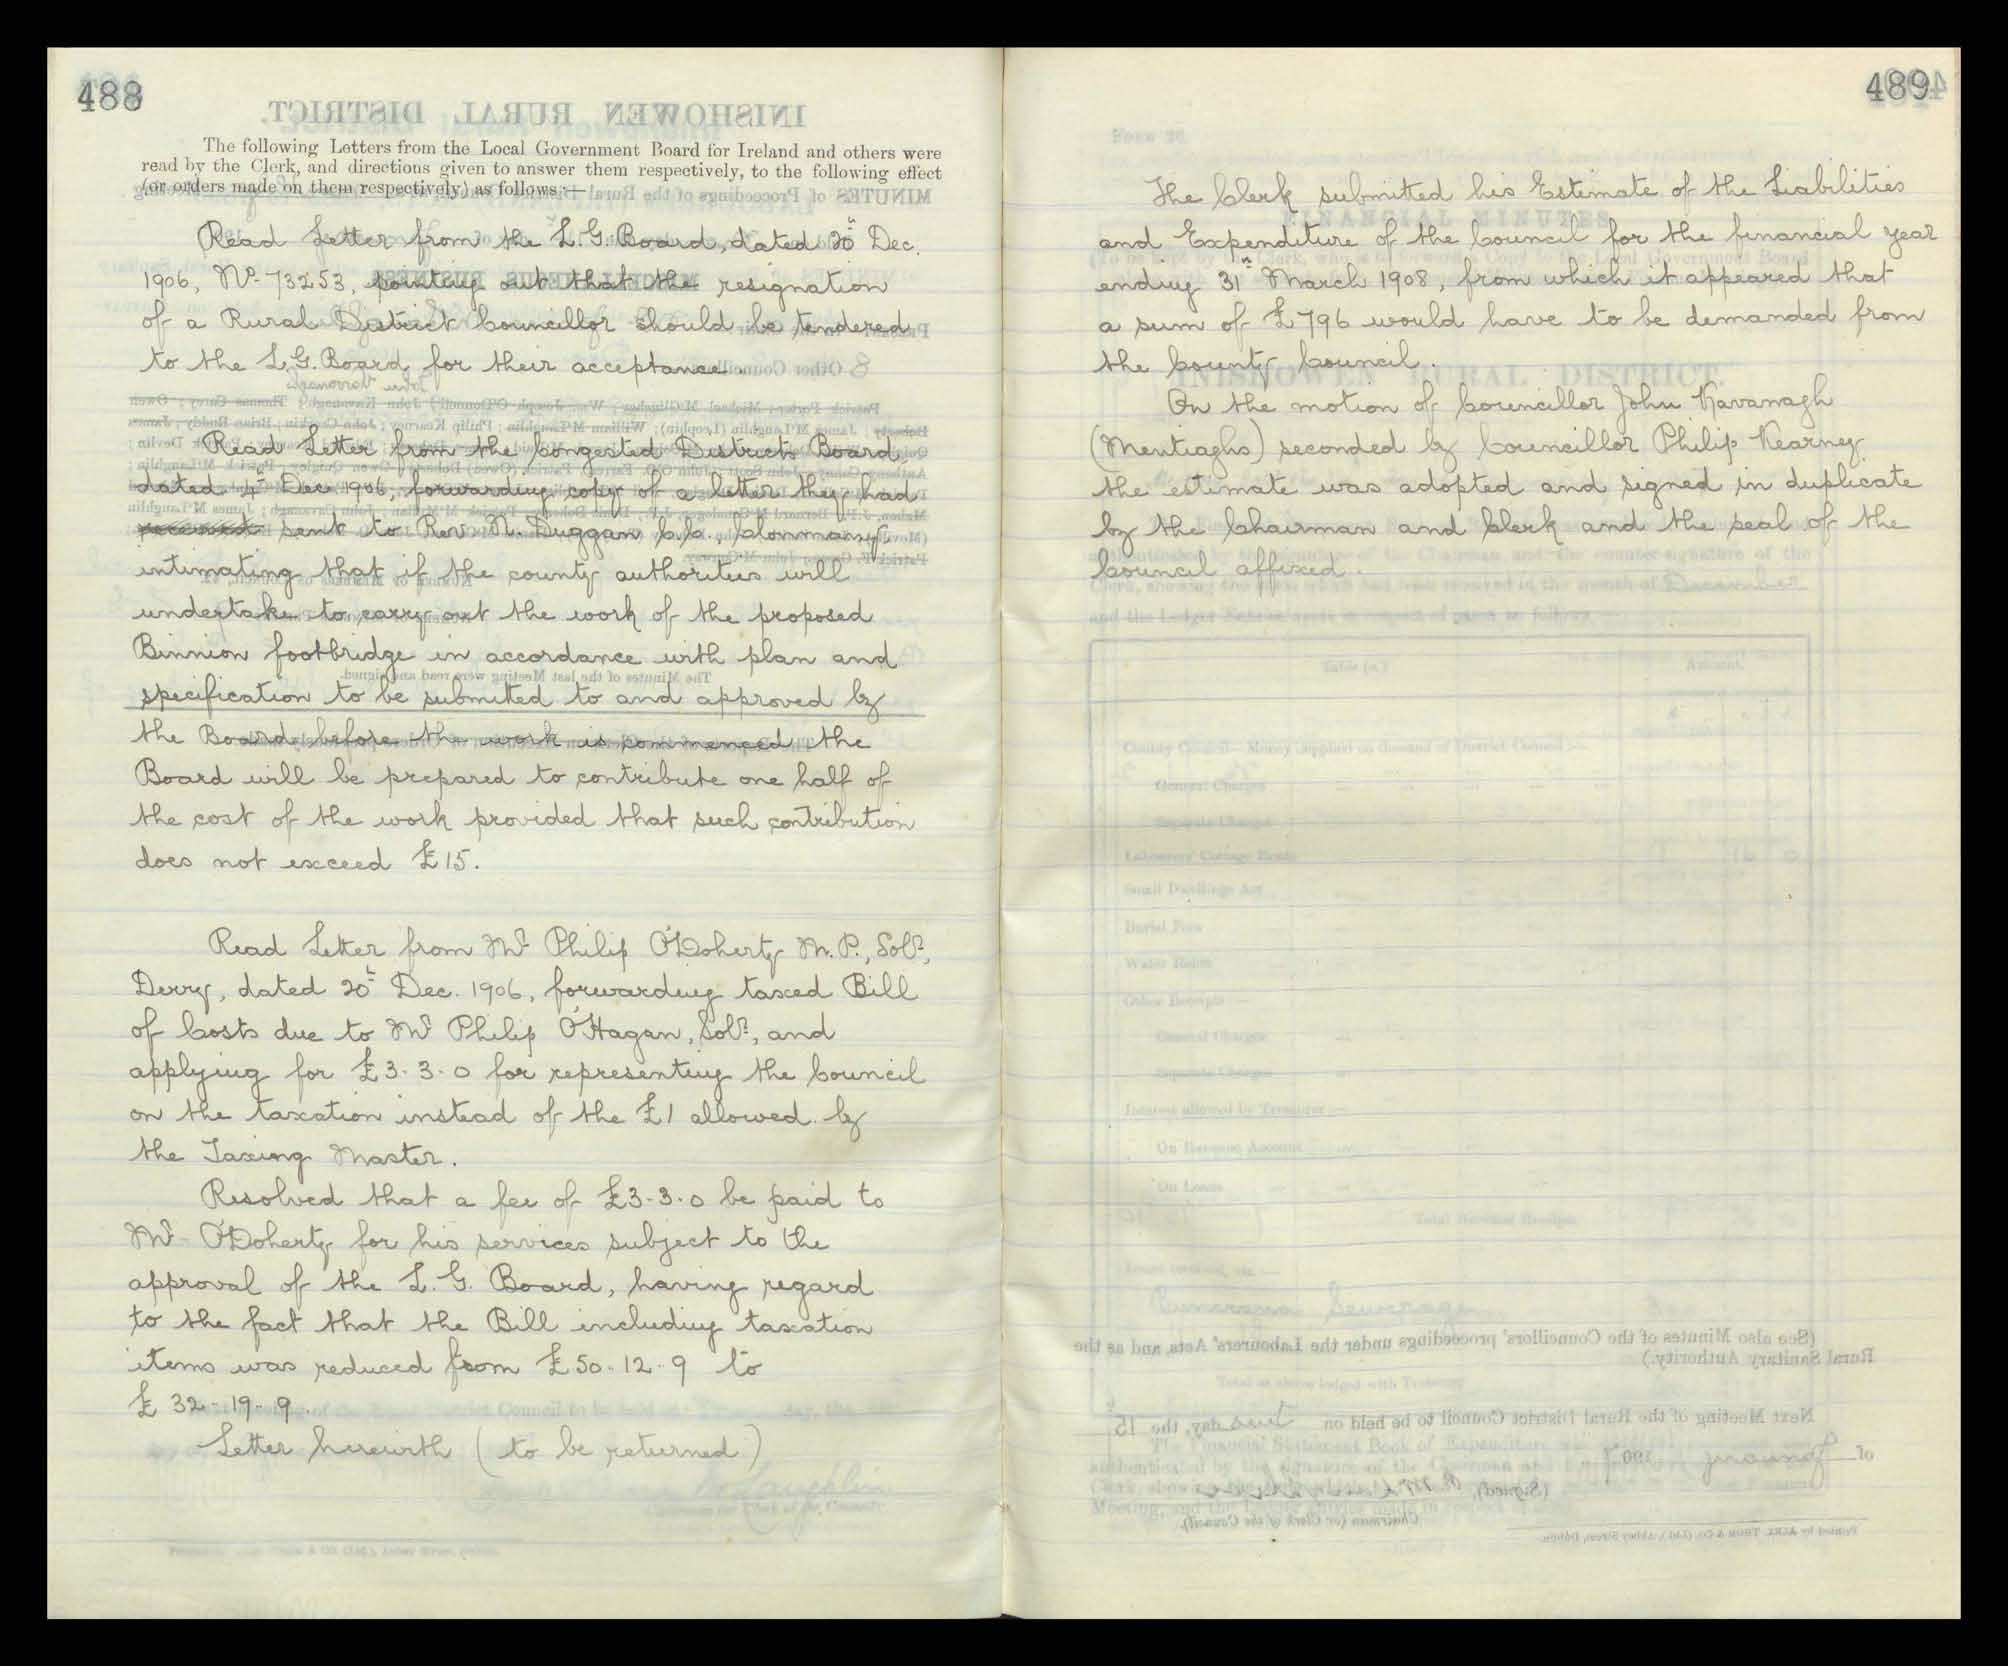 488
The following Letters from the Local Government Board for Ireland and others were
read by the Clerk, and directions given to answer them respectively, to the following effect
(or orders made on them respectively) as follows:—
Read Letter from the L.G. Board, dated 20th Dec.
1906, No. 73253, pointing out that the resignation
of a Rural District Councillor should be tendered
to the L.G. Board for their acceptance.
Read Letter from the Congested Districts Board,
dated 4th Dec. 1906, forwarding copy of a letter they had
received sent to Rev. N. Duggan C.C., Clonmany,
intimating that if the county authorities will
undertake to carry out the work of the proposed
Binnion footbridge in accordance with plan and
specification to be submitted to and approved by
the Board before the work is commenced the
Board will be prepared to contribute one half of
the cost of the work provided that such contribution
does not exceed £15.
Read Letter from Mr. Philip O'Doherty M.P., Solr.,
Derry, dated 20th Dec. 1906, forwarding taxed Bill
of Costs due to Mr. Philip O'Hagan, Solr., and
applying for £3-3-0 for representing the Council
on the taxation instead of the £1 allowed by
the Taxing Master.
Resolved that a fee of £3-3-0 be paid to
Mr. O'Doherty for his services subject to the
approval of the L.G. Board, having regard
to the fact that the Bill including taxation
items was reduced from £50-12-9 to
£32-19-9.
Letter herewith (to be returned)
489
The Clerk submitted his Estimate of the Liabilities
and Expenditure of the Council for the financial year
ending 31st March 1908, from which it appeared that
a sum of £796 would have to be demanded from
the County Council.
On the motion of Councillor John Kavanagh
(Mentiaghs) seconded by Councillor Philip Kearney
the estimate was adopted and signed in duplicate
by the Chairman and Clerk and the seal of the
Council affixed.